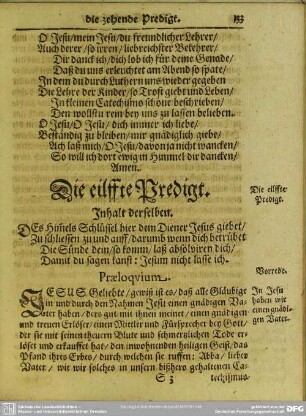 die zehende Predigt.
O Jesu/mein Jesu/ du freundlicher Lehrer/
Auch derer/ so irren/ liebreichster Bekehrer/
Dir danck ich/ dich lob ich für deine Genade/
Daß du uns erleuchtet am Abend so spate/
In dem du durch Luthern uns wieder gegeben
Die Lehre der Kinder/ so Trost giebt und Leben/
In kleinen Catechismo schöne beschrieben/
Den wollstu rein bey uns zu lassen belieben.
O Jesu/ O Jesu/ dich immer ich liebe/
Beständig zu bleiben/ mir gnädiglich giebe/
Ach laß mich/ O Jesu/ davon ja nicht wancken/
So will ich dort ewig im Himmel dir dancken/
Amen.
Die eilffte Predigt.
Die eilffte
Predigt.
Inhalt derselben.
DEs Himels Schlüsel hier dem Diener Jesus giebet/
Zu schliessen zu und auff/ darumb wenn dich betrübet
Die Sünde dein/ so komm/ laß absolviren dich/
Damit du sagen kanst: Jesum nicht lasse ich.
Præloquium.
Vorrede.
JESUS Geliebte/ gewiß ist es/ daß alle Gläubige
in und durch den Nahmen Jesu einen gnädigen Va-
ter haben/ ders gut mit ihnen meinet/ einen gnädigen
und treuen Erlöser/ einen Mittler und Fürsprecher bey Gott/
der sie mit seinen theuren Blute und schmertzlichen Tode er-
löset und erkauffet hat/ den inwohnenden heiligen Geist/ das
Pfand ihres Erbes/ durch welchen sie ruffen: Abba/ lieber
Vater/ wie wir solches in unsern bißher gehaltenen Ca-
In Jesu
haben wir
einen gnä-
digen Va-
ter.
techismus-